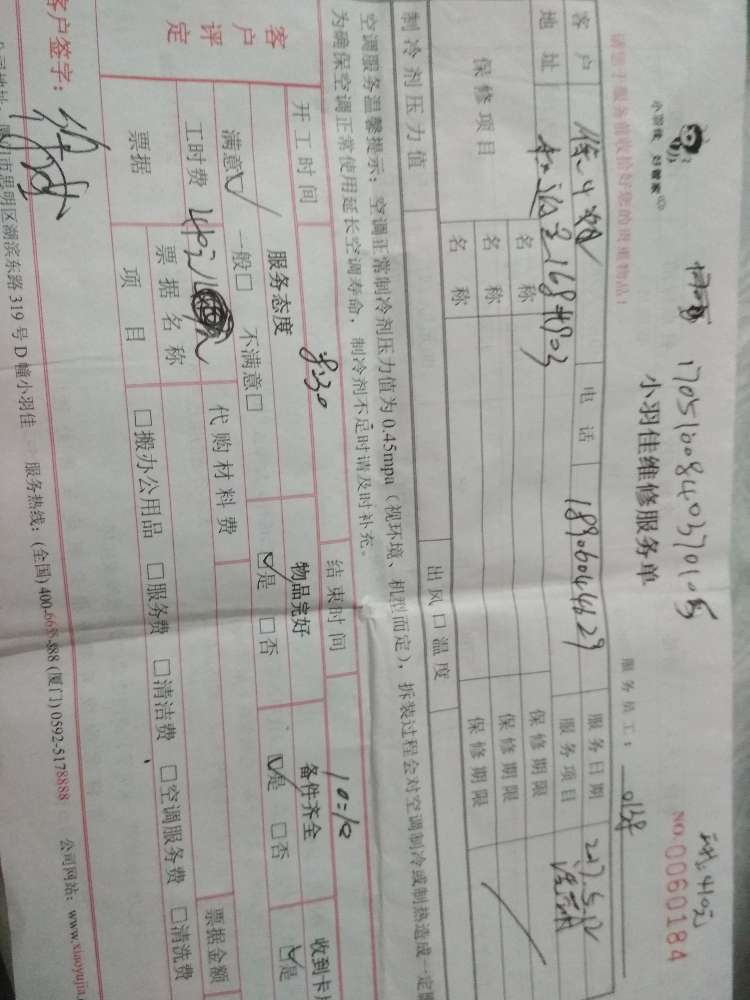 小羽佳 好管家
请您于服务前收拾好您的贵重物品!
170510084037010号
小羽佳维修服务单
服务员工:
NO.0060184
客户
电话 18906044629
服务日期 2017.5.12
地址
服务项目
保修项目 名称 保修期限
名称 保修期限
名称 保修期限
制冷剂压力值 出风口温度
空调服务温馨提示:空调正常制冷剂压力值为0.45mpa(视环境、机型而定),拆装过程会对空调制冷或制热造成一定
为确保空调正常使用延长空调寿命,制冷剂不足时请及时补充。
开工时间 8:30 结束时间 10:10
客户评定 服务态度 物品完好 备件齐全 收到卡
满意☑ 一般☐ 不满意☐ ☑是 ☐否 ☑是 ☐否 ☑是
工时费 代购材料费
票据 票据名称 票据金额
项目 ☐搬办公用品 ☐服务费 ☐清洁费 ☐空调服务费 ☐清洗费
客户签字:
市思明区湖滨东路319号D幢小羽佳 服务热线:(全国)400-665-888(厦门)0592-5178888 公司网站:www.xiaoyujia.